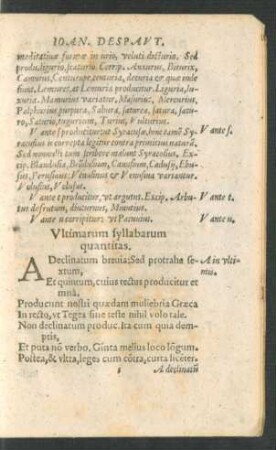 IOAN. DESPAVT.
meditatiuæ formæ in urio, veluti dicturio. Sed
produc, ligurio, scaturio. Corrip. Anxurus, Biturix,
Camurus, Centurupe, centuria, decuria & quæ inde
fiunt, Lemures, at Lemuria productur. Liguria, lu-
xuria. Mamurius variatur, Masurius, Mercurius,
Palphurius, purpura, Saburra, satura, satura,
ro, Saturio, tugurium, Turius, Vulturius.
V ante s producitur, vt Syracusæ, hinc tamē Sy- V ante s.
racusius v correpta legitur contra primitiui naturā.
Sed nonnulli tum scribere malunt Syracosius. Ex-
cip. Blandusia, Brundusium, Canusium, Cadusij, Ebu-
sus, Perusinus. Venusinus & Venusina variantur.
Volusius, Volusus.
V ante t producitur, vt argutus. Excip. Arbu- V ante t.
tus, defrutum, diuturnus, Mutius.
V ante u corripitur: vt Pacuuius. V ante u.
Vltimarum syllabarum
quantitas.
A Declinatum breuia; Sed protrahe se- A in vlti-
xtum, mis.
Et quintum, cuius rectus producitur et
mnā.
Producunt nostri quædam muliebria Græca
In recto, vt Tegea sine teste nihil volo tale.
Non declinatum produc. Ita cum quia dem-
ptis,
Et puta nō verbo. Ginta melius loco lōgum.
Postea, & vltra, leges cum cōtra, corta licēter.
A declinatū